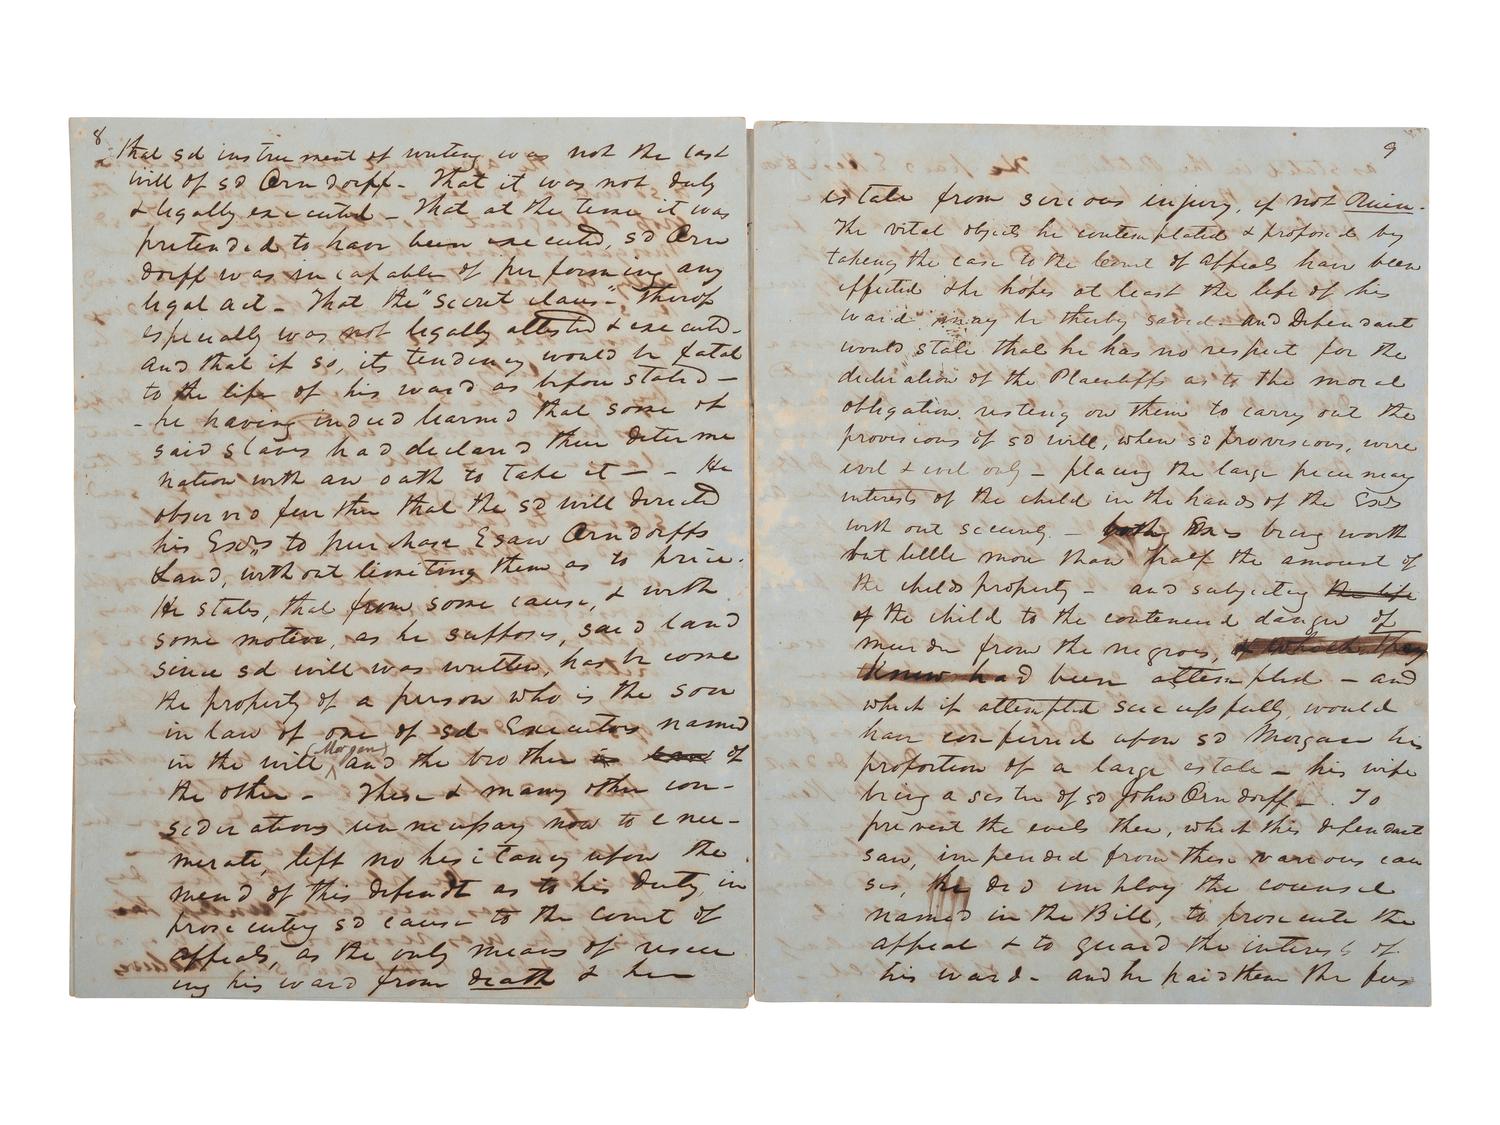 8
that sd instrument of writing was not the last
will of sd Orndorff - That it was not duly
& legally executed - That at the time it was
pretended to have been executed, sd Orn
dorff was incapable of performing any
legal act - That the "secret claus" - Therof
especially was not legally attested & executed -
and that if so, its tendency would be fatal
to the life of his ward as before stated -
- he having indeed learned that some of
said slaves had declared their determe
nation with an oath to take it - - He
observed further that the sd will directed
his Exors to purchase Esaw Orndorffs
Land, without limiting them as to price.
He states, that from some cause, & with
some motive, as he supposes, said land
since sd will was written, has become
the property of a person who is the son
in law of one of sd Executors named
in the will, Morgan, and the brother in law of
the other - These & many other con-
siderations unnecessary now to enu-
merate, left no hesitancy upon the
mend of this defendt as to his duty, in
prosecuting sd cause to the Court of
appeals, as the only means of rescu
ing his ward from death & her
9
estate from serious injury, if not Ruin.
The vital objects he contemplated & proposed by
takeng the case to the Court of Appeals have been
effected & he hopes at least the life of his
ward may be therby saved - and Defendant
would state that he has no respect for the
declaration of the Plaintiffs as to the moral
obligation resteng on them to carry out the
provisions of sd will, when sd provisions, were
evil & evil only - placing the large pecuniary
interests of the child in the hands of the Exors
with out security - both being worth
but little more than half the amount of
the childs property - and subjecting the life
of the child to the contenued danger of
murder from the negroes, of which they
knew had been attempted - and
which if attempted successfully, would
have conferred upon sd Morgan his
proportion of a large estate - his wife
being a sister of sd John Orndorff - . To
prevent the evils then, which this defendant
saw, impended from these various cau
ses, he did employ the counsel
named in the Bill, to prosecute the
appeal & to guard the interests of
his ward - and he paid them the fees